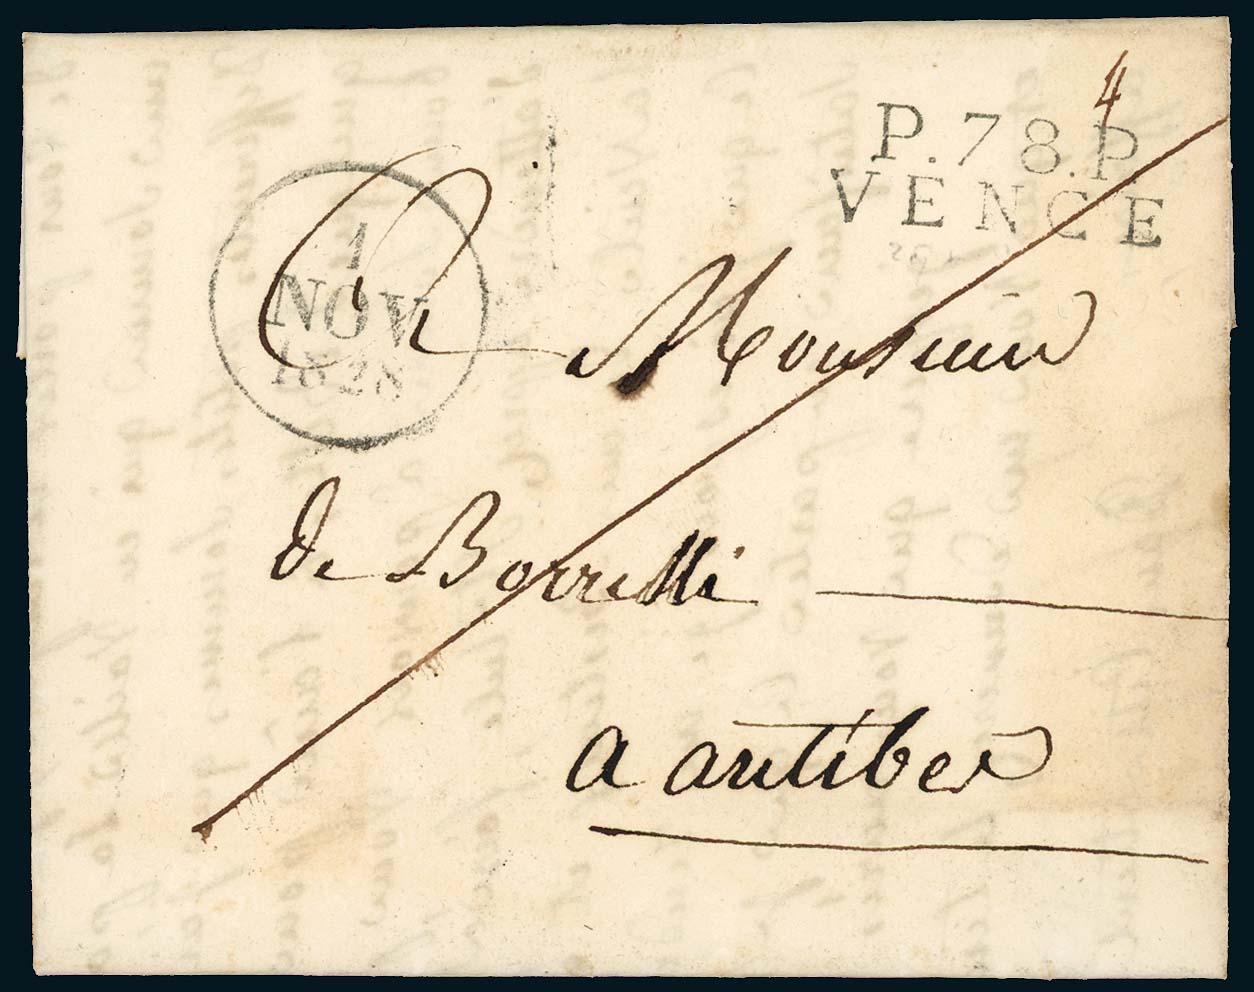 4
P.78.P
VENCE
1
NOV
1828
A Monsieur
de Borrelli
a antibes